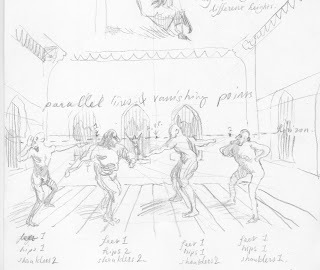 different heights.
parallel lines & vanishing point
horizon
feet 1
hips 1
shoulders 2
feet 1
hips 2
shoulders 2
feet 1
hips 1
shoulders 2
feet 1
hips 1
shoulders 1